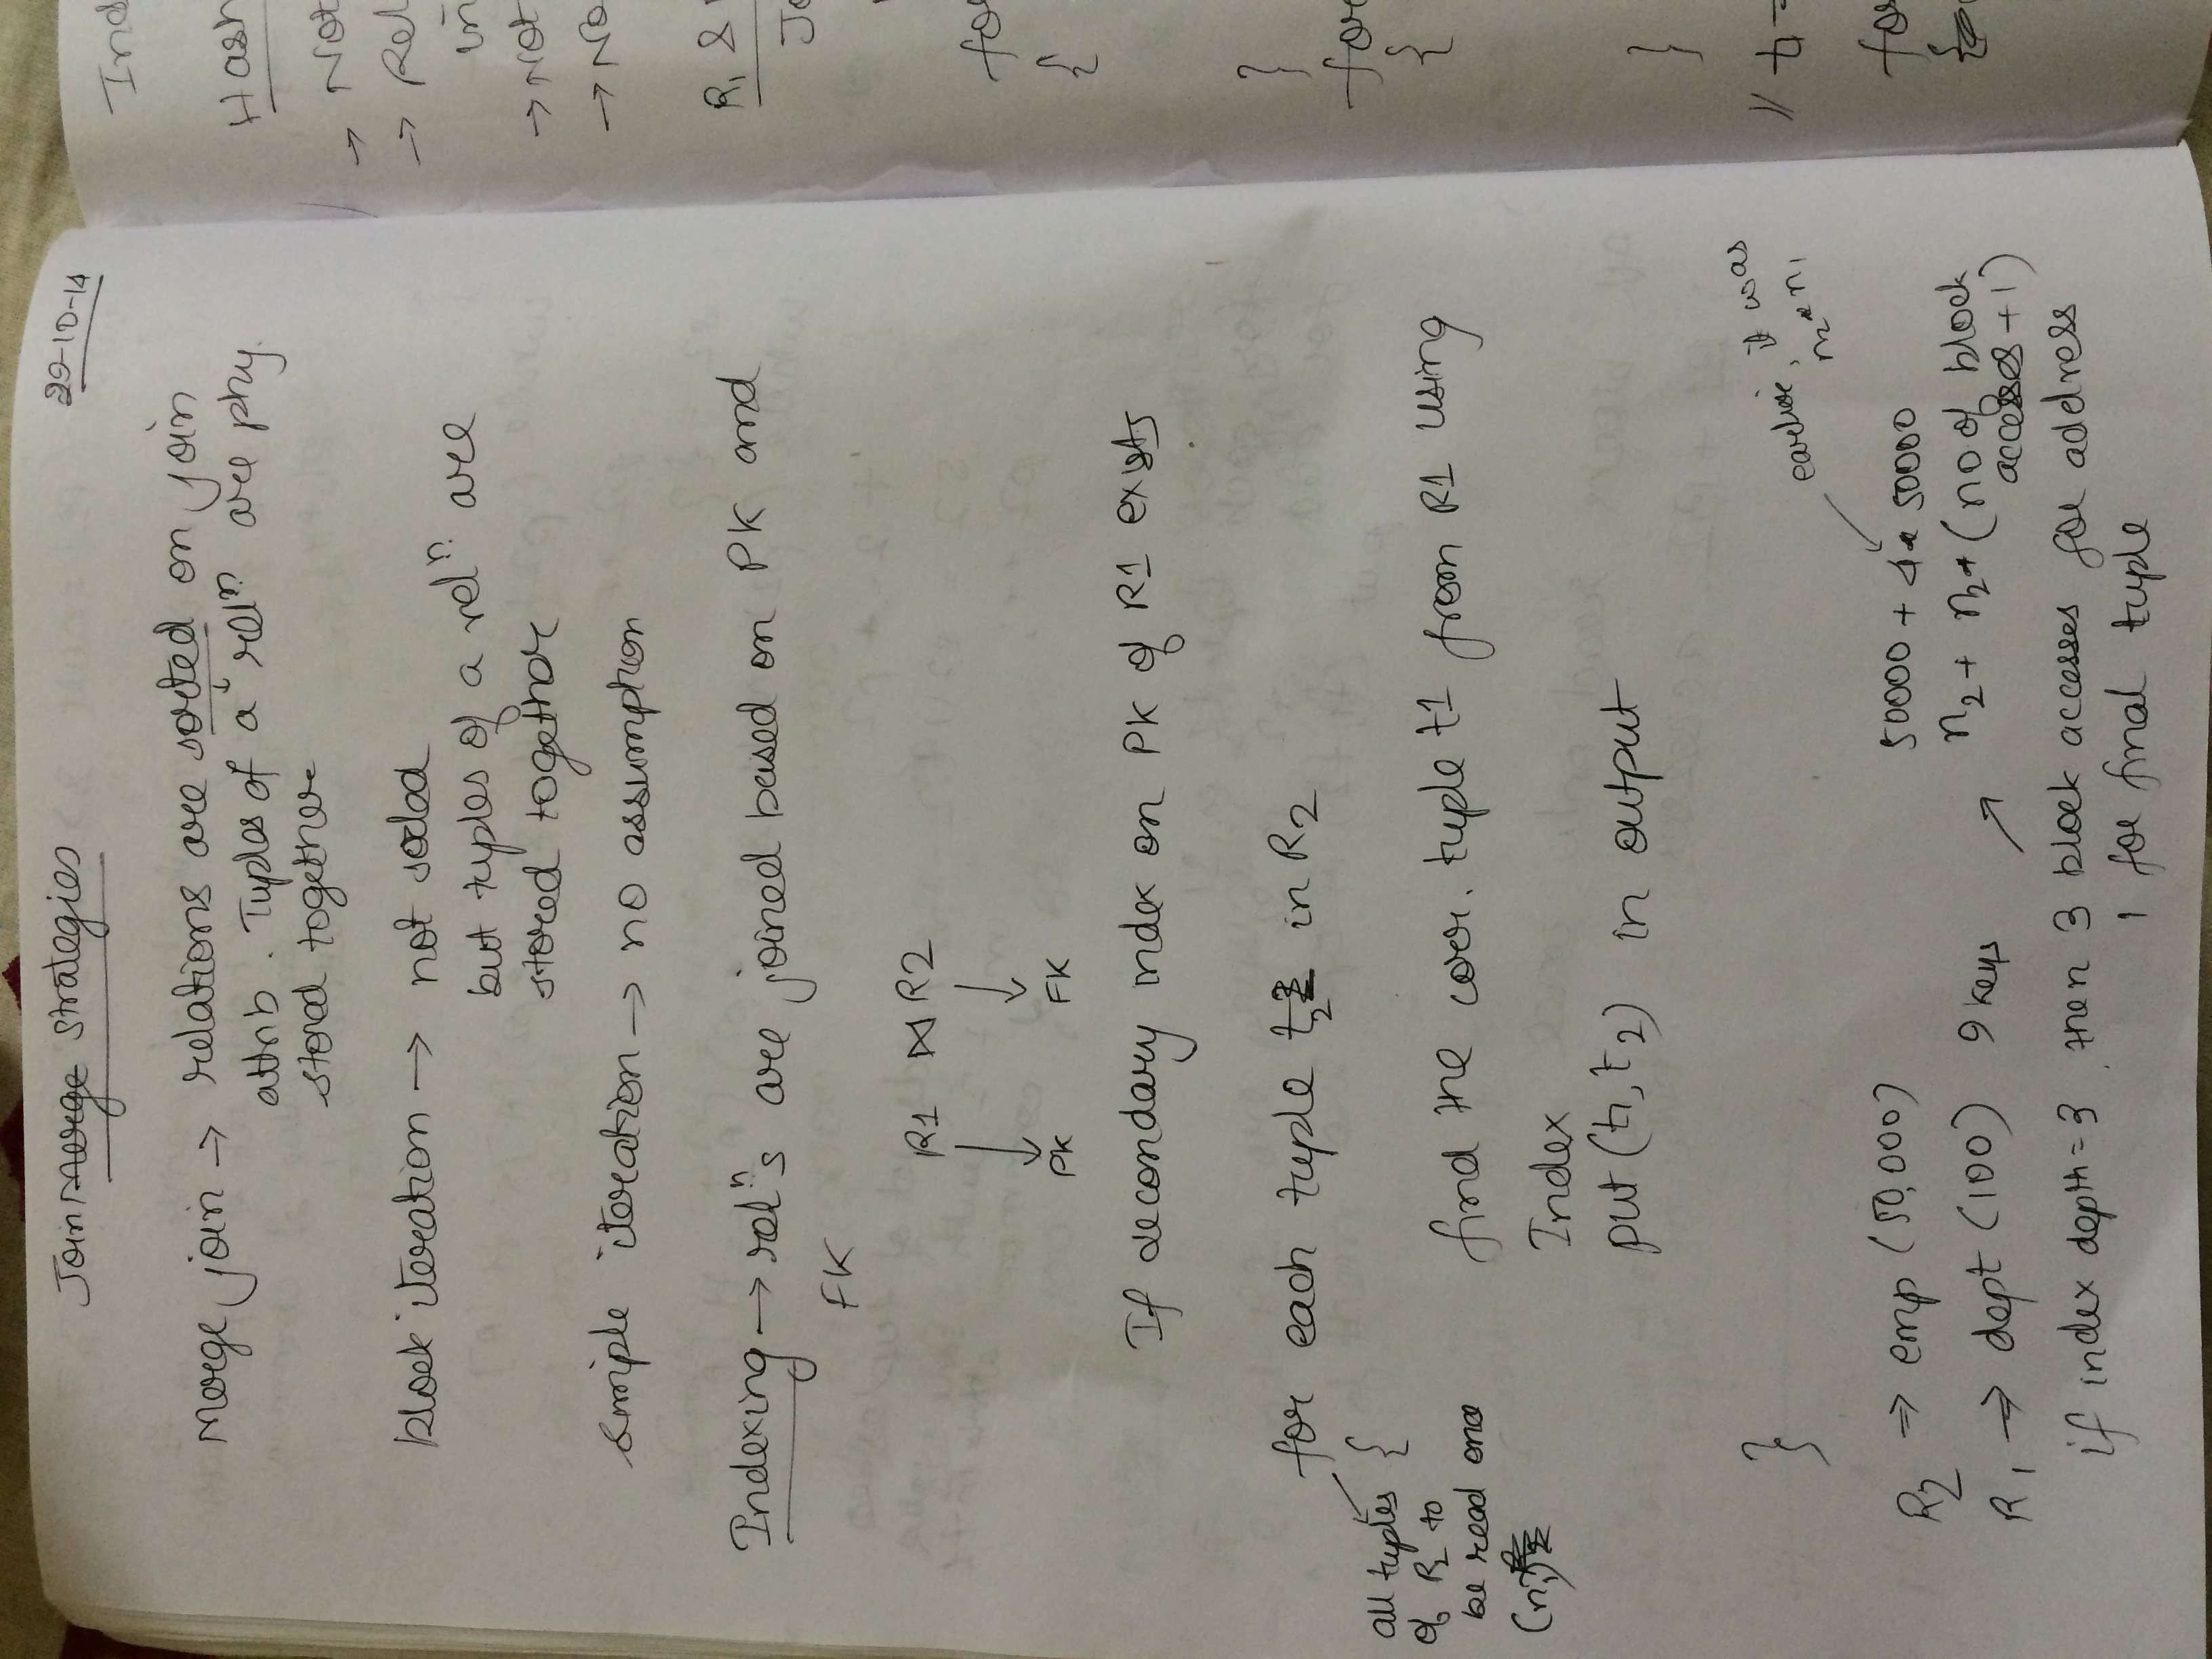 Join Merge Strategies
29-10-14
Merge join → relations are sorted on join
attrib. Tuples of a relⁿ are phy.
stored together
block iteration → not sorted
but tuples of a relⁿ are
stored together
simple iteration → no assumption
Indexing → relⁿs are joined based on PK and
FK
R1 ⋈ R2
PK FK
If secondary index on PK of R1 exists
for each tuple t₂ in R2
{
all tuples
of R2 to
be read once
find the corr. tuple t1 from R1 using
Index
put (t1, t2) in output
}
earlier, it was
n2 * n1
R2 ⇒ emp (50,000)
50000 + 4 * 50000
R1 ⇒ dept (100) 9 keys
n2 + n2 * (no of block
accesses + 1)
if index depth = 3 then 3 block accesses for address
1 for final tuple
Hash
→ Not
→ Rel
in
→ Not
→ No
R1 &
Jo
for
{
}
for
{
}
// t1 =
for
{